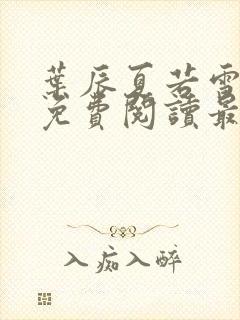 葉辰夏若雪
免費閱讀最
入痴入醉